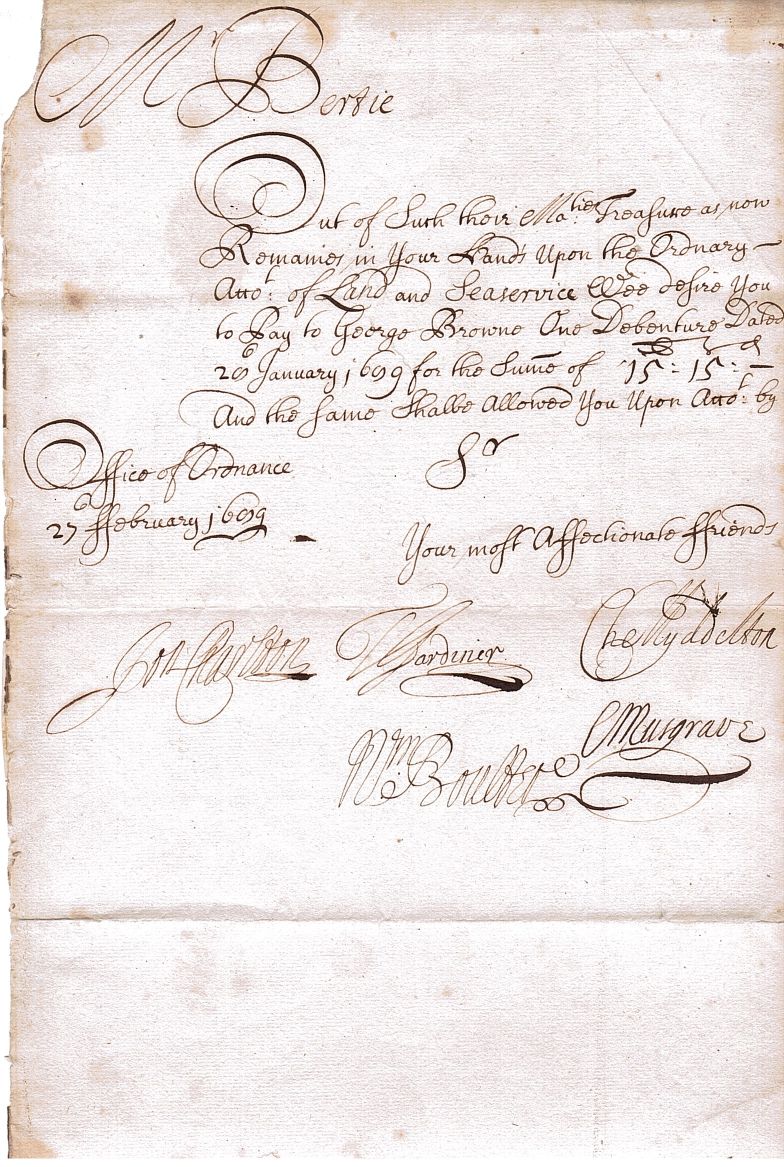 Mr Bertie
Out of Such their Ma:ties Treasure as now
Remaines in Your Hands Upon the Ordnary
Acco:t of Land and Seaservice Wee desire You
to Pay to George Browne One Debenture Dated
January 1689 for the Sume of £ s d 15: 15: —
And the same Shalbe Allowed You Upon Acco:t by
Office of Ordnance
Sr
27 ffebruary 1689
Your most Affectionate ffriends
Jon Charlton
Gardiner
Che Myddelton
C Musgrave
Wm Boulter